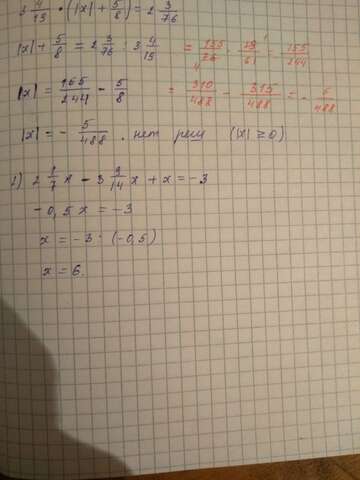 3 4/15 · (|x| + 5/8) = 2 3/76
|x| + 5/8 = 2 3/76 : 3 4/15 = 155/76 · 15/61 = 155/244
|x| = 165/244 - 5/8 = 310/488 - 315/488 = - 5/488
|x| = - 5/488 . нет реш (|x| ≥ 0)
2) 2 2/7 x - 3 9/14 x + x = -3
-0,5x = -3
x = -3 : (-0,5)
x = 6.